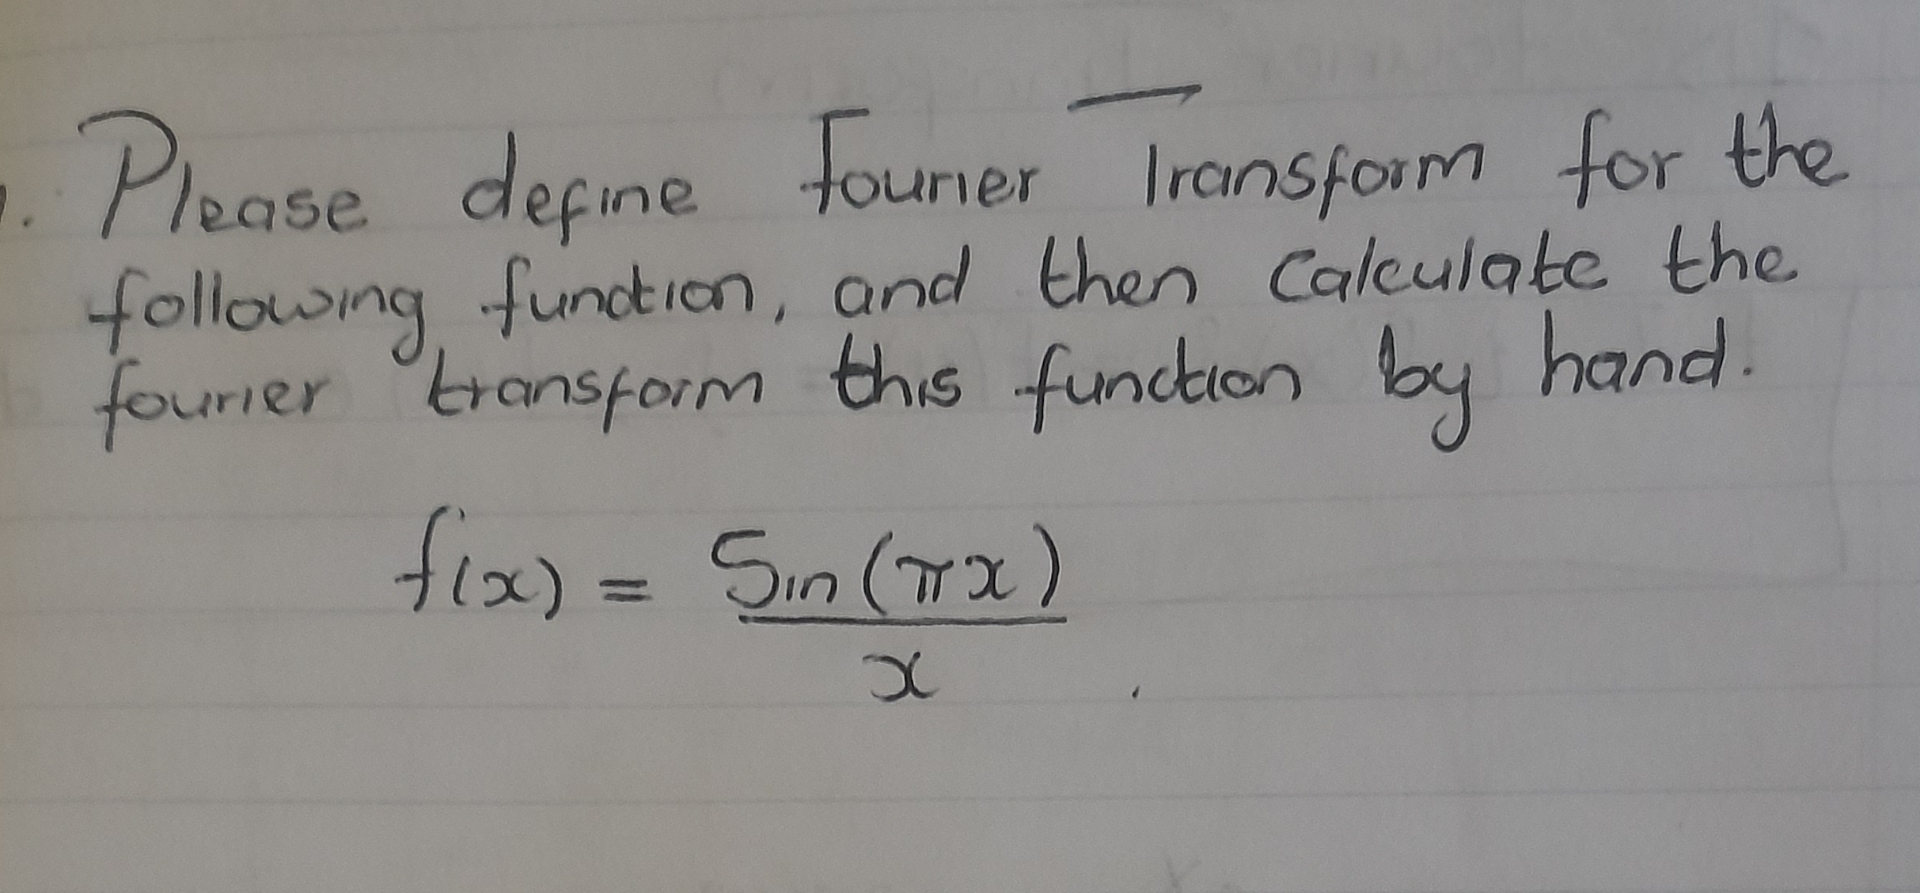 1. Please define Fourier Transform for the
following function, and then calculate the
fourier transform this function by hand.
f(x) = Sin(πx)
x .